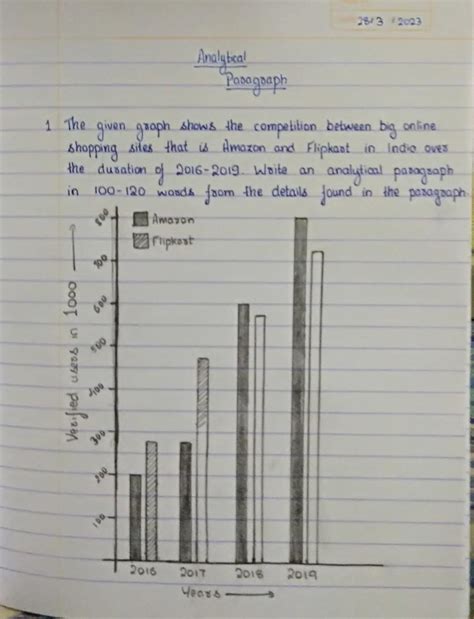 28/3/2023
Analytical
Paragraph
1. The given graph shows the competition between big online
shopping sites that is Amazon and Flipkart in India over
the duration of 2016-2019. Write an analytical paragraph
in 100-120 words from the details found in the paragraph
Amazon
Flipkart
800
700
600
500
400
300
200
100
Verified users in 1000
2016 2017 2018 2019
Years